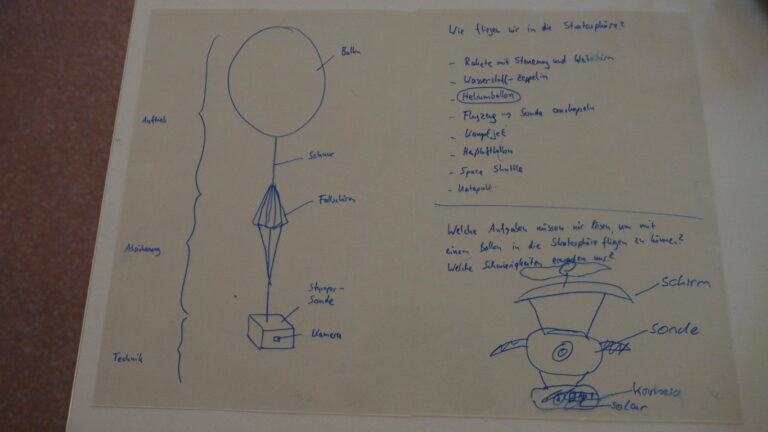 Ballon
Auftrieb
Schnur
Fallschirm
Absicherung
Styropor-
Sonde
Kamera
Technik
Wie fliegen wir in die Stratosphäre?
- Rakete mit Steuerung und
- Wasserstoff-Zeppelin
- Heliumballon
- Flugzeug → Sonde auskoppeln
- Kampfjet
- Heißluftballon
- Space Shuttle
- Katapult
Welche Aufgaben müssen wir lösen, um mit
einem Ballon in die Stratosphäre fliegen zu können?
Welche Schwierigkeiten erwarten uns?
Schirm
Sonde
solar